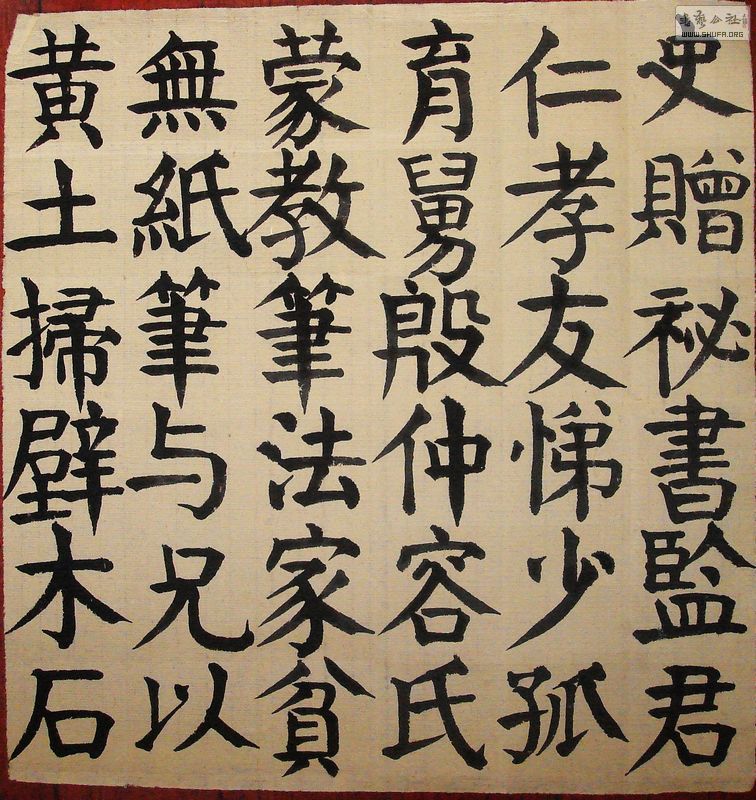 史贈祕書監君
仁孝友悌少孤
育舅殷仲容氏
蒙教筆法家貧
無紙筆与兄以
黄土掃壁木石
书艺公社
WWW.SHUFA.ORG